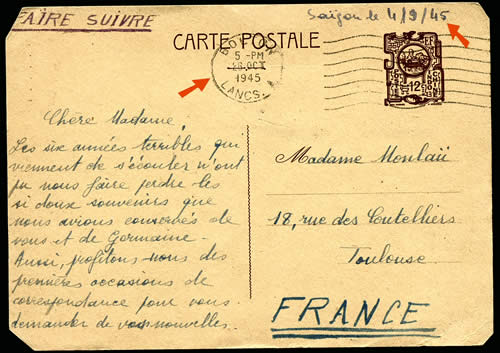 FAIRE SUIVRE
Saïgon le 4/9/45
CARTE POSTALE
BOLTON
5 - PM
26 OCT
1945
LANCS.
12
Chère Madame,
Les six années terribles qui
viennent de s'écouler n'ont
pu nous faire perdre les
si doux souvenirs que
nous avions conservés de
vous et de Germaine.
Aussi, profitons-nous des
premières occasions de
correspondance pour vous
demander de vos nouvelles.
Madame
18, rue des Coutelliers
Toulouse
FRANCE